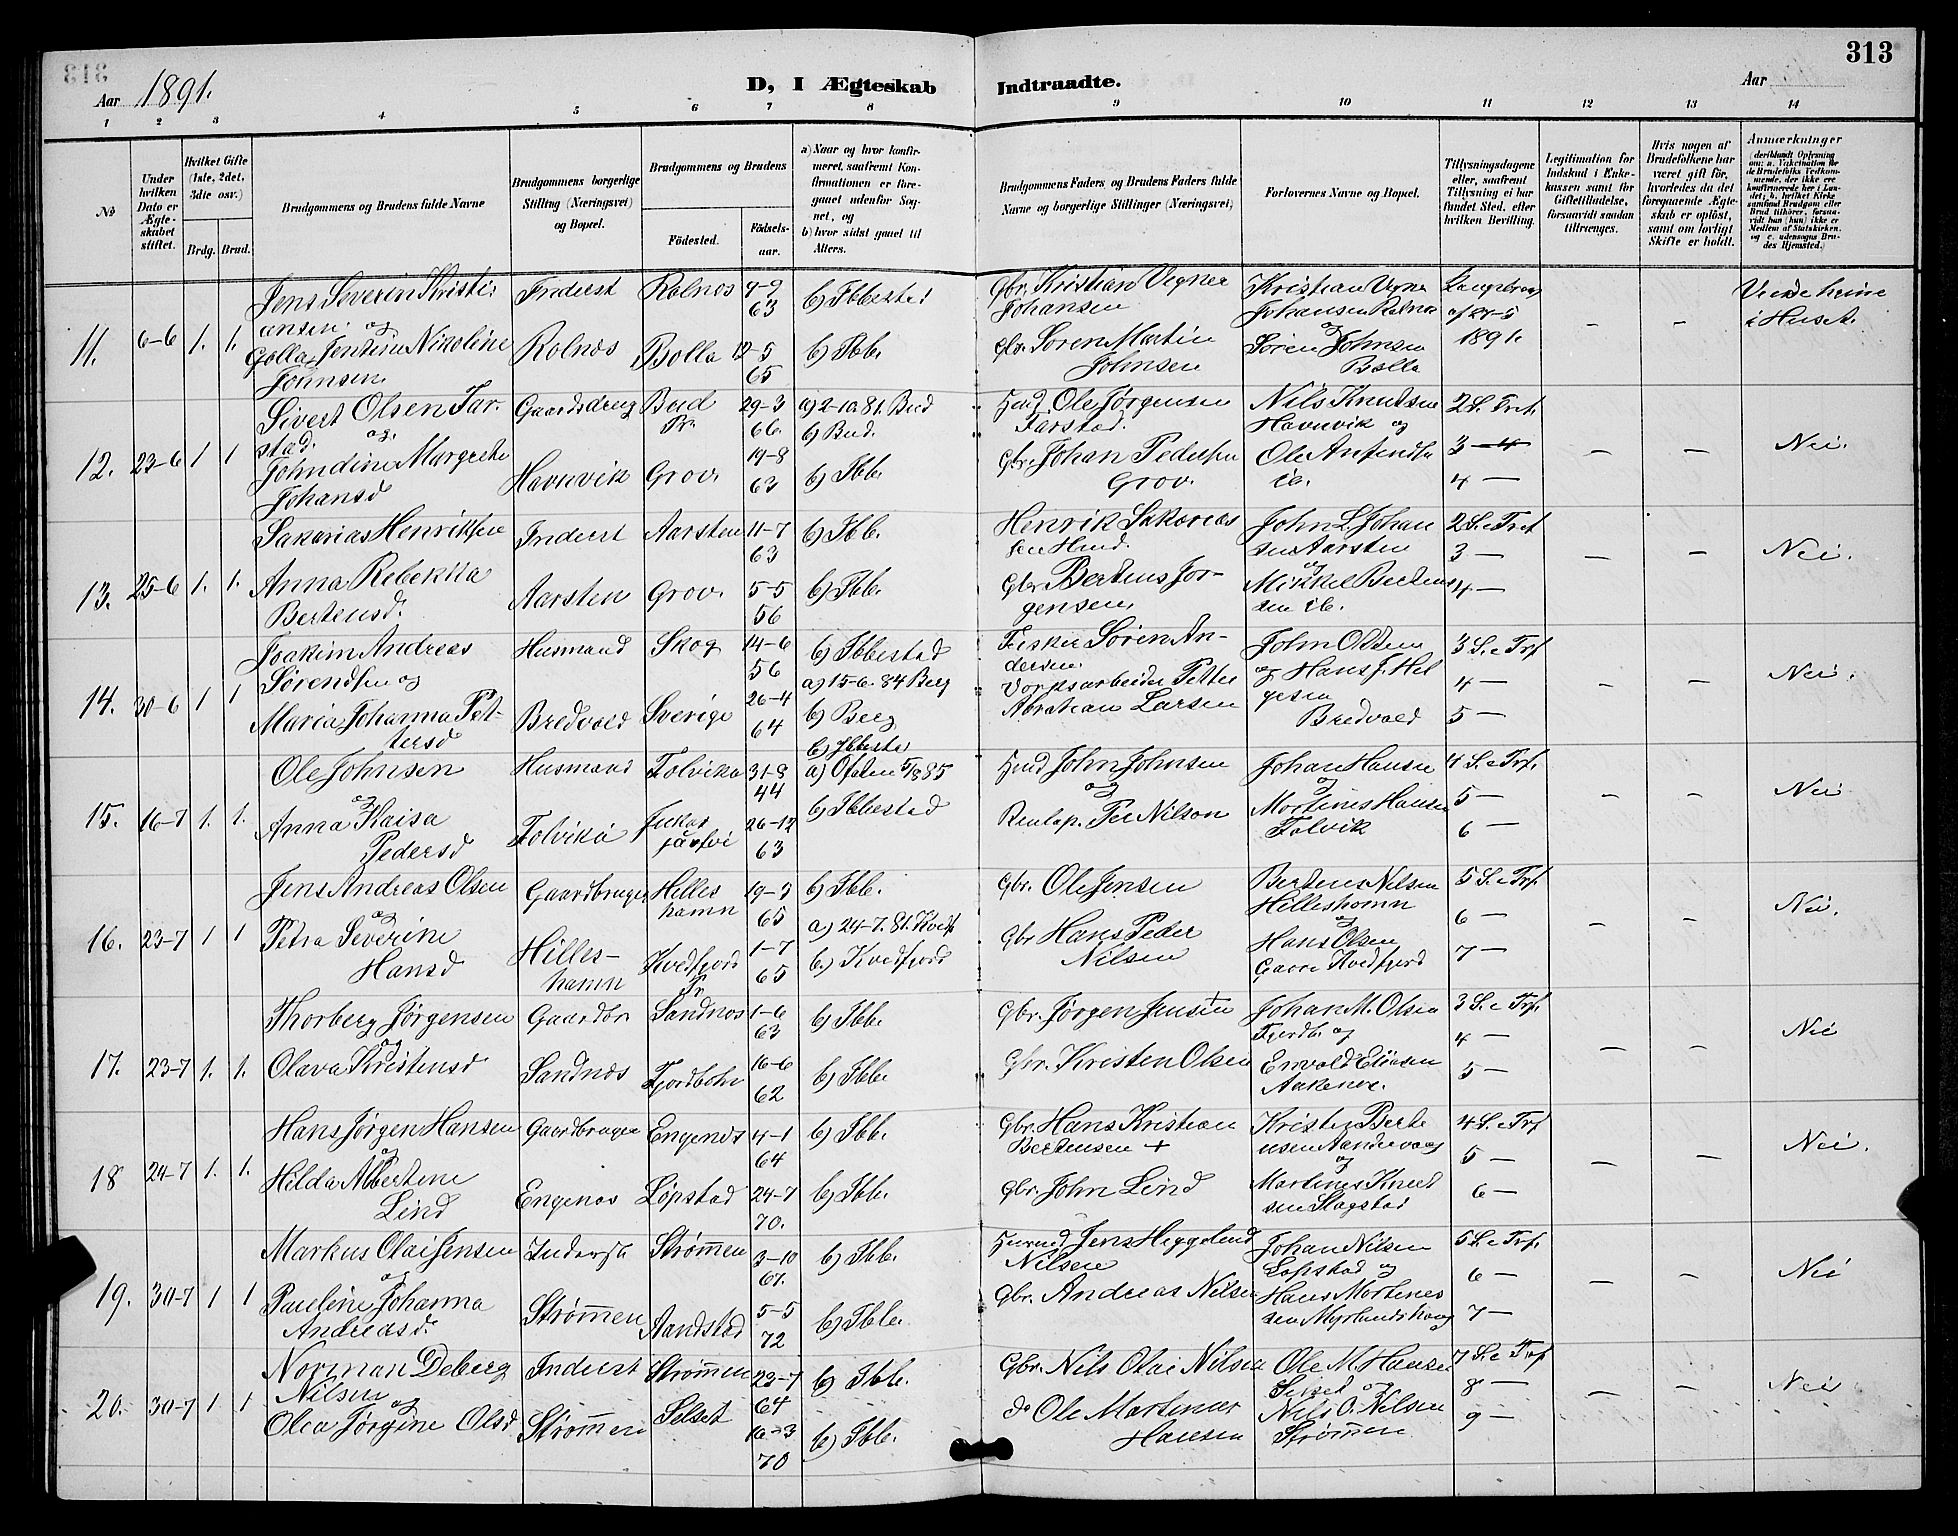 313
Aar 1891.
D, I Ægteskab Indtraadte.
Aar
1 2 3 4 5 6 7 8 9 10 11 12 13 14
№
Under hvilken Dato er Ægteskabet stiftet.
Hvilket Gifte (1ste, 2det, 3die osv.)
Brdg. Brud.
Brudgommens og Brudens fulde Navne
Brudgommens borgerlige Stilling (Næringsvei) og Bopæl.
Brudgommens og Brudens
Fødested.
Fødselsaar.
a) Naar og hvor konfirmeret, saafremt Konfirmationen er foregaaet udenfor Sognet, og
b) hvor sidst gaaet til Alters.
Brudgommens Faders og Brudens Faders fulde Navne og borgerlige Stillinger (Næringsvei)
Forlovernes Navne og Bopæl.
Tillysningsdagene eller, saafremt Tillysning ei har fundet Sted, efter hvilken Bevilling.
Legitimation for Indskud i Enkekassen samt for Giftetilladelse, forsaavidt saadan tiltrænges.
Hvis nogen af Brudefolkene har været gift før, hvorledes da det foregaaende Ægteskab er opløst, samt om lovligt Skifte er holdt.
Anmærkninger
11. 6-6 1. 1.
Jens Severin Kristiansen og
Inderst Rolnes 9-9 63 b) Ibbestad
Gbr. Kristian Vegner Johansen
Kristian Vegner Johansen Rolnes og
27-5 1891.
Viede hime i Huset.
Golla Jentine Nikoline Johnsen
Rolnes Bolla 12-5 65 b) Ibb.
Gbr. Soren Martin Johnsen
Søren Johnsen Bolla
12. 23-6 1 1
Sivert Olsen Tarstad. og.
Gaardsdreng Bud Pr. 29-3 66. a) 2-10.81. Bud b) Bud.
Ole Jørgensen Tarstad.
Nils Knudsen Havnvik og
2 S. Tret. 3 — 4 —
Nei.
Johndine Margrethe Johansd
Havnvik Grov. 19-8 63 b) Ibb.
Gbr. Johan Pedersen Grov.
Ole ib.
13. 25-6 1. 1.
Sakarias Henriksen
Inderst Aarsten 11-7 63 b) Ibb.
Henrik Sakariassen
John L. Johansen Aarsten og
2 S. e Tret 3 — 4 —
Nei.
Anna Rebekka Bertensd.
Aarsten Grov. 5-5 56 b) Ibb.
Gbr. Bertens Jorgensen.
Mikkel Bertensen ib.
14. 30-6 1 1
Joakim Andreas Sørensen og
Husmand Skog 14-6 56 b) Ibbestad
Fisker Søren Andersen
John Olsen og Hans J. Helgesen Bredvold
3 S. e Trf. 4 — 5 —
Nei.
Maria Johanna Pettersd
Bredvold Sverige 26-4 64 a) 15-6. 84 Berg b) Berg
Petter Abraham Larsen
15. 16-7 1. 1.
Ole Johnsen og
Husmand Tolvika 31-8 44 b) Ibbestad
John Johnsen og
Johan Hansen og
4 S. e Trf. 5 — 6 —
Nei
Anna Kaisa Pedersd
Tolvika 26-12 63 a) Ofoten 5/8 85 b) Ibbestad
Renlap. Per Nilson
Mortines Hansen Tolvik
16. 23-7 1 1
Jens Andreas Olsen og
Gaardbruger Hilleshamn 19-9 65 b) Ibb.
Gbr. Ole Jensen
Bertens Nilsen Hilleshamn og
5 S. e Trf. 6 — 7 —
Nei.
Petra Severine Hansd
Hilleshamn Kvedfjord Pr 1-7 65 a) 24-7. 81. Kvedf b.) Kvedfjord
Gbr Hans Peder Nilsen
Hans Olsen Kvedfjord
17. 23-7 1. 1.
Thorberg Jørgensen og
Gaardbr Sandnes 1-6 63 b) Ibb.
Gbr. Jørgen Jensen
Johan M. Olsen Fjordb. og
3 S. e Trf. 4 — 5 —
Nei
Olava Kristensd
Sandnes Fjordbotn 16-6 62 b) Ibb.
Gbr. Kristen Olsen
Envold Eliasen
18 24-7 1. 1.
Hans Jørgen Hansen og
Gaardbruger Engenes 4-1 64 b) Ibb.
Gbr. Hans Kristian Bertensen +
Kristen Bertensen og
4 S. e Trf 5 — 6 —
Nei.
Hilda Albertine Lind
Engenes Løpstad 24-7 70. b) Ibb.
Gbr. John Lind
Martines Knudsen Slagstad
19. 30-7 1 1
Markus Olai Jensen og
Inderst Strømen 3-10 67. b) Ibb.
Jens Heggelund Nilsen
Johan Nilsen Lopstad og
5 S. e Trf. 6 — 7 —
Nei
Pauline Johanna Andreasd.
Strømen Aandstad 5-5 72 b) Ibb.
Gbr. Andreas Nilsen
Hans Mortinessen Myrlandshaug
20. 30-7 1 1
Norman Deberg Nilsen og
Inderst Strømen 23-7 64 b) Ibb.
Gbr. Nils Olai Nilsen
Ole M. Hansen Selset og
7 S. e Trf 8 — 9 —
Nei
Olea Jørgine Olsd
Strømen Selset 16-3 70 b) Ibb.
do Ole Martinus Hansen
Nils O. Nilsen Strømen